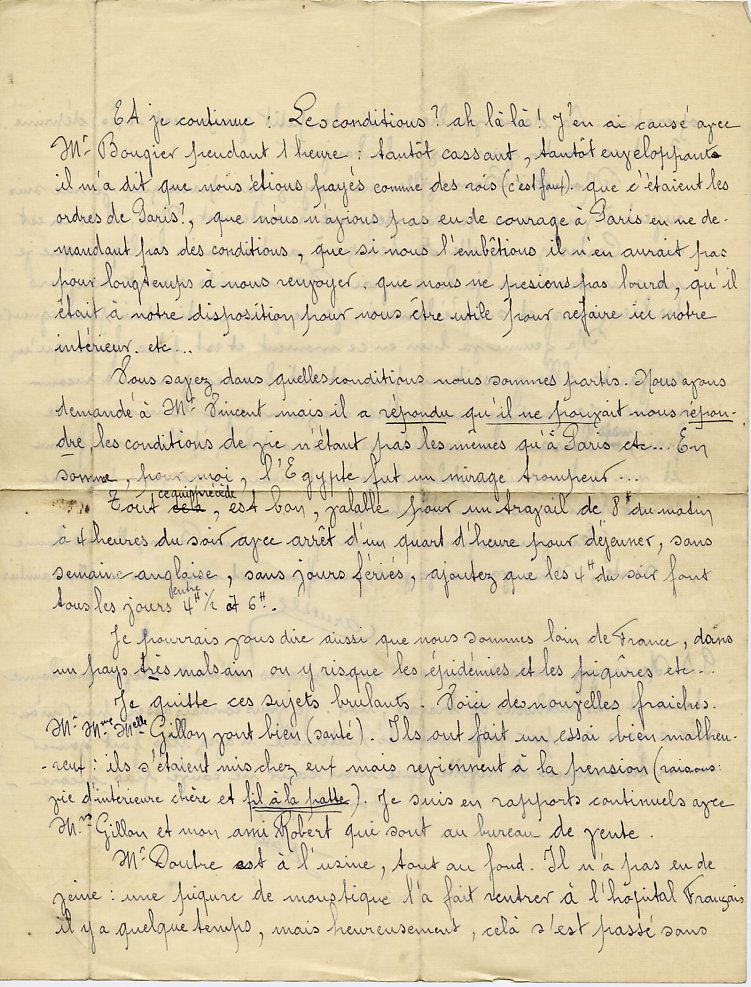 Et je continue : Les conditions ? ah là là ! J'en ai causé avec
Mr Bougier pendant 1 heure : tantôt cassant, tantôt enveloppant
il m'a dit que nous étions payés comme des rois (c'est faux). que c'étaient les
ordres de Paris ?, que nous n'avions pas eu de courage à Paris en ne de-
mandant pas des conditions, que si nous l'embêtions il n'en aurait pas
pour longtemps à nous renvoyer. que nous ne pesiens pas lourd, qu'il
était à notre disposition pour nous être utile pour refaire ici notre
intérieur. etc...
Vous savez dans quelles conditions nous sommes partis. Nous avons
demandé à Mr Vincent mais il a répondu qu'il ne pouvait nous répon-
dre, les conditions de vie n'étant pas les mêmes qu'à Paris etc... En
somme, pour moi, l'Egypte fut un mirage trompeur...
Tout cela ce qui précède, est bon, valable pour un travail de 8H du matin
à 4 heures du soir avec arrêt d'un quart d'heure pour déjeuner, sans
semaine anglaise, sans jours fériés, ajoutez que les 4H du soir font
tous les jours entre 4H 1/2 et 6H.
Je pourrais vous dire aussi que nous sommes loin de France, dans
un pays très malsain ou y risque les épidémies et les piqûres etc...
Je quitte ces sujets brulants. Voici des nouvelles fraiches.
Mr Mme Melle Gillon vont bien (santé). Ils ont fait un essai bien malheu-
-reux : ils s'étaient mis chez eux mais reviennent à la pension (raisons :
vie d'intérieure chère et fil à la patte). Je suis en rapports continuels avec
Mr Gillon et mon ami Robert qui sont au bureau de vente.
Mr Doutre est à l'usine, tout au fond. Il n'a pas eu de
veine : une piqure de moustique l'a fait rentrer à l'hôpital Français
il y a quelque temps, mais heureusement, celà s'est passé sans